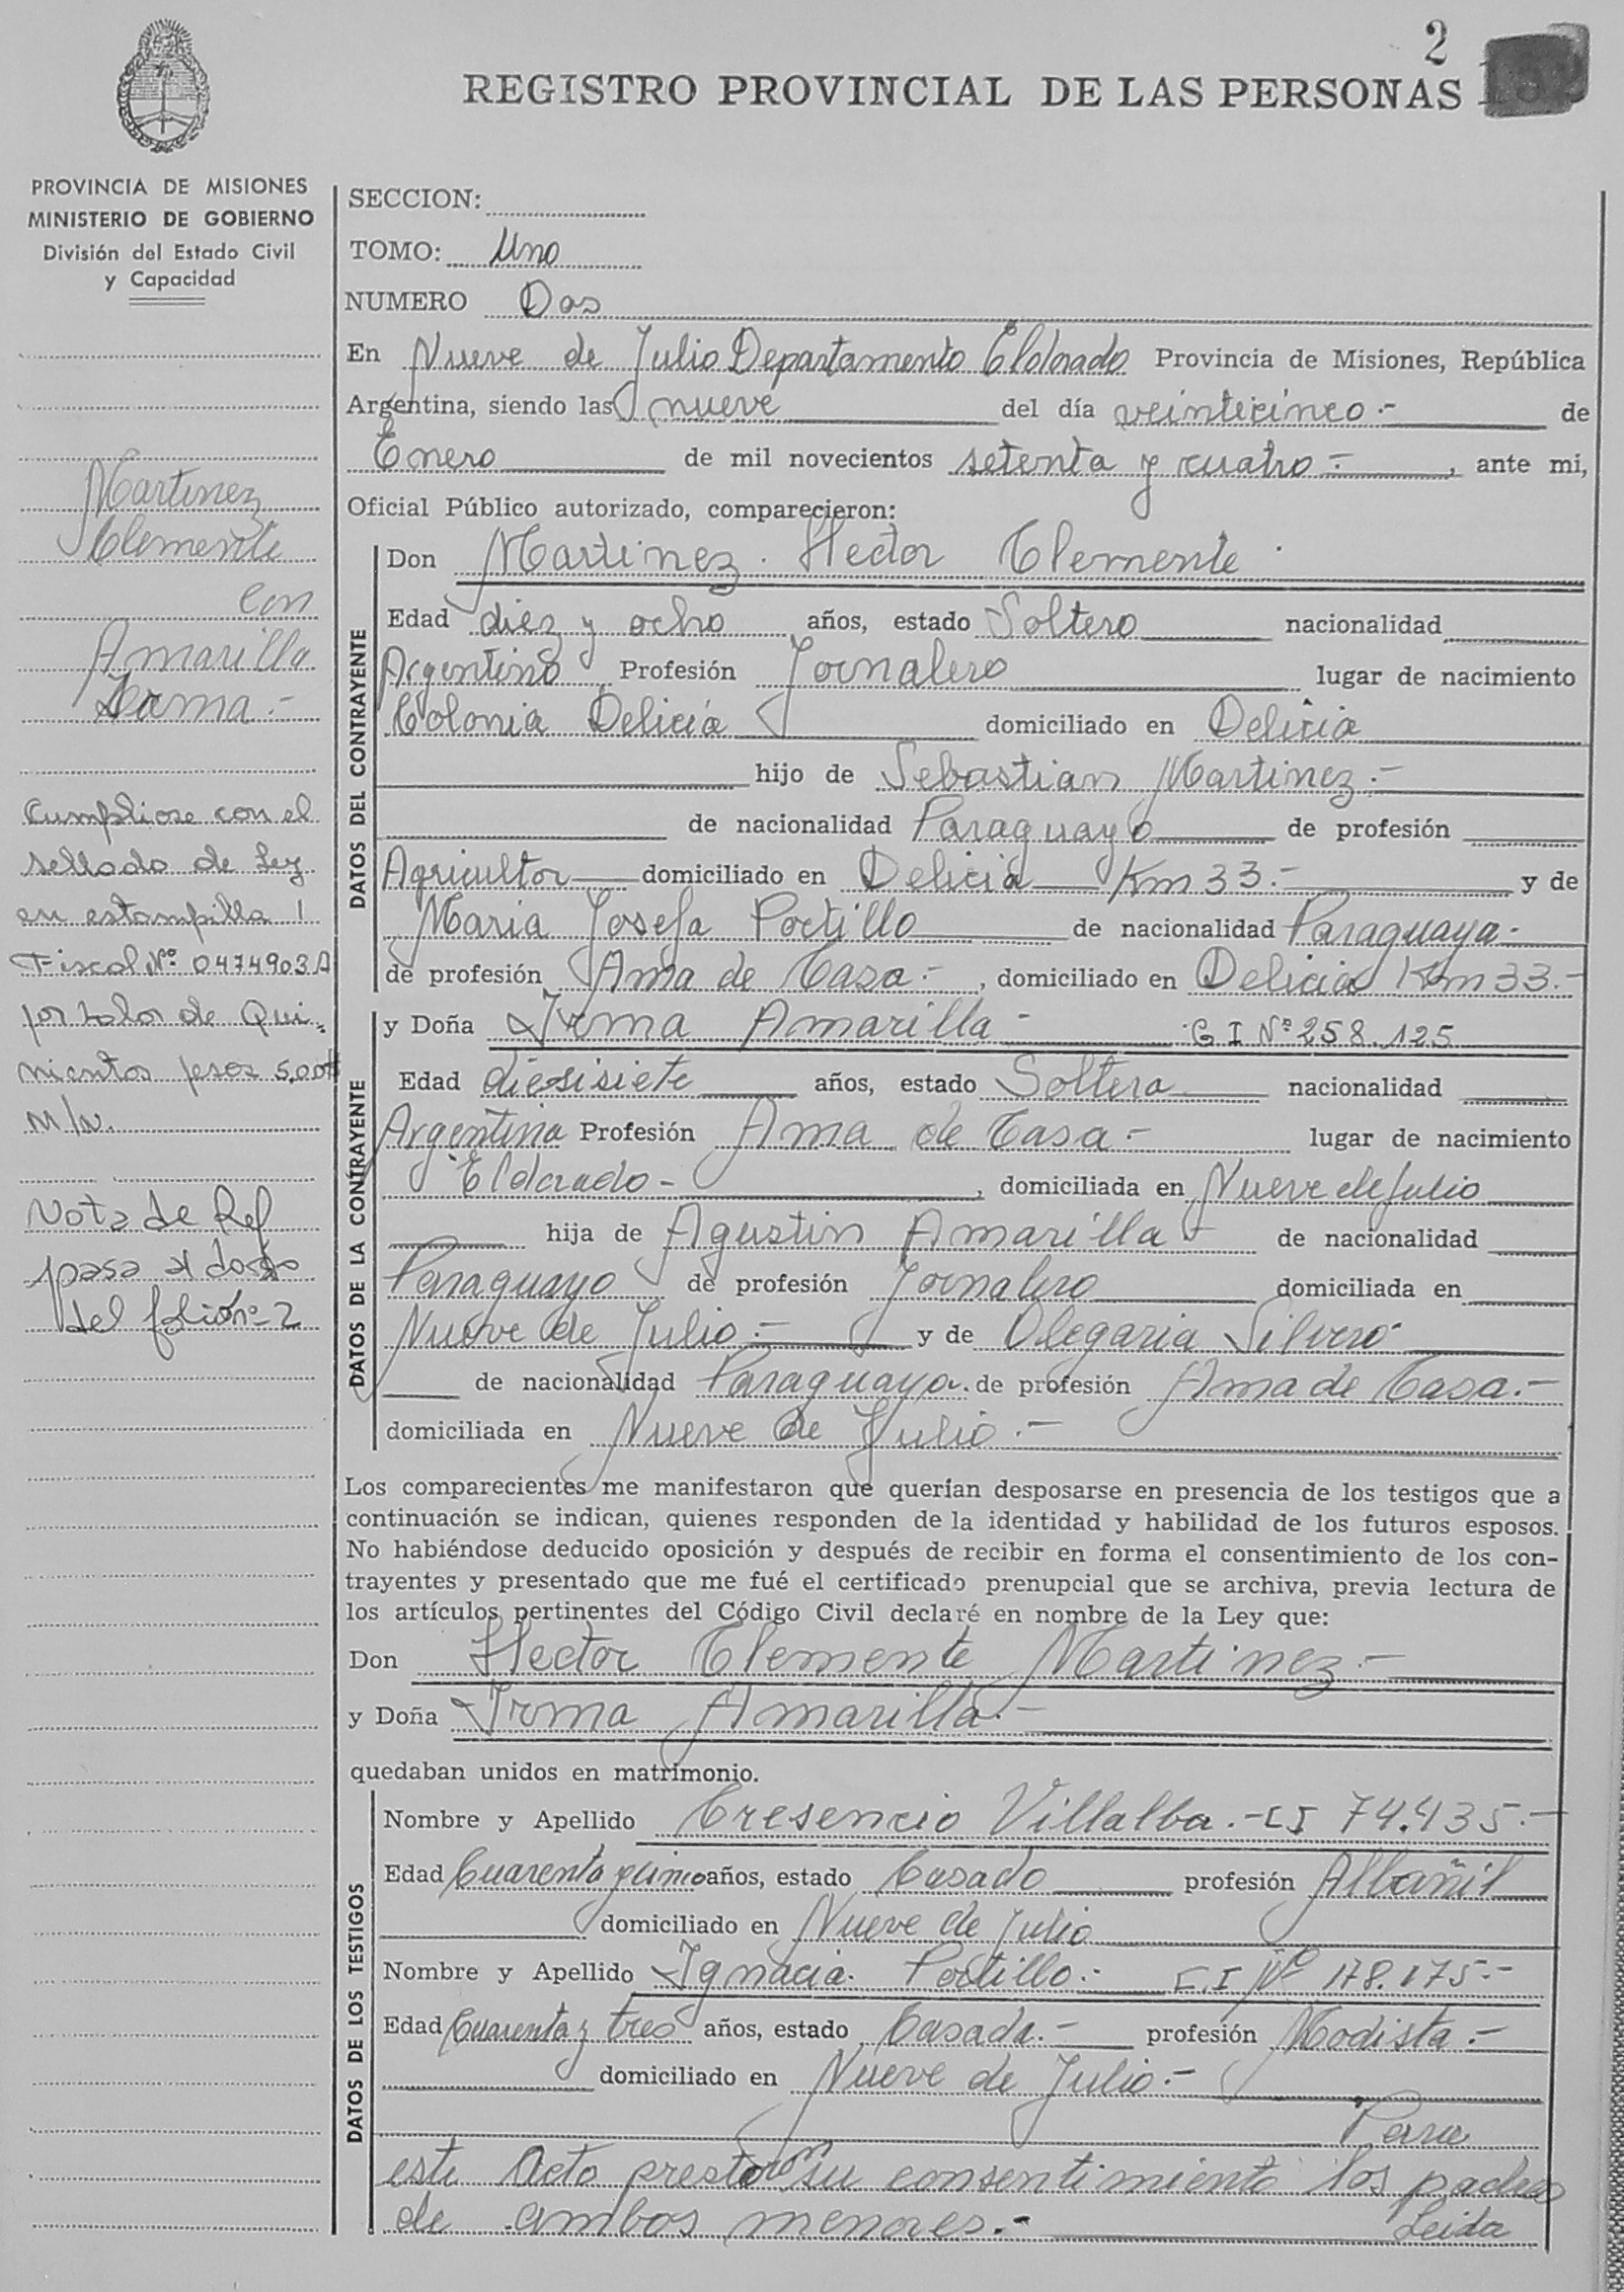 2
REGISTRO PROVINCIAL DE LAS PERSONAS
PROVINCIA DE MISIONES
MINISTERIO DE GOBIERNO
División del Estado Civil
y Capacidad
Martinez
Clemente
con
Amarilla
Irma.-
Cumpliose con el
sellado de Ley
en estampilla
Fiscal Nº 0474903A
por valor de Qui-
nientos pesos 5,00
M/N.
Nota de Ref
pasa al dorso
del folio nº 2
SECCION:
TOMO: Uno
NUMERO Dos
En Nueve de Julio Departamento Eldorado Provincia de Misiones, República
Argentina, siendo las nueve del día veinticinco.- de
Enero de mil novecientos setenta y cuatro.- , ante mi,
Oficial Público autorizado, comparecieron:
DATOS DEL CONTRAYENTE
Don Martinez Hector Clemente
Edad diez y ocho años, estado Soltero nacionalidad
Argentino Profesión Jornalero lugar de nacimiento
Colonia Delicia domiciliado en Delicia
hijo de Sebastian Martinez.-
de nacionalidad Paraguayo de profesión
Agricultor domiciliado en Delicia Km 33.- y de
Maria Josefa Portillo de nacionalidad Paraguaya-
de profesión Ama de Casa.- , domiciliado en Delicia Km 33.-
DATOS DE LA CONTRAYENTE
y Doña Irma Amarilla - C I Nº 258.125
Edad diesisiete años, estado Soltera nacionalidad
Argentina Profesión Ama de Casa.- lugar de nacimiento
Eldorado - , domiciliada en Nueve de Julio
hija de Agustin Amarilla - de nacionalidad
Paraguayo de profesión Jornalero domiciliada en
Nueve de Julio.- y de Olegaria Silvero
de nacionalidad Paraguaya. de profesión Ama de Casa.-
domiciliada en Nueve de Julio.-
Los comparecientes me manifestaron que querían desposarse en presencia de los testigos que a
continuación se indican, quienes responden de la identidad y habilidad de los futuros esposos.
No habiéndose deducido oposición y después de recibir en forma el consentimiento de los con-
trayentes y presentado que me fué el certificado prenupcial que se archiva, previa lectura de
los artículos pertinentes del Código Civil declaré en nombre de la Ley que:
Don Hector Clemente Martinez.-
y Doña Irma Amarilla.-
quedaban unidos en matrimonio.
DATOS DE LOS TESTIGOS
Nombre y Apellido Cresencio Villalba.- C I 74.435.-
Edad Cuarenta y cinco años, estado Casado profesión Albañil
domiciliado en Nueve de Julio
Nombre y Apellido Ignacia Portillo.- C.I Nº 178.175.-
Edad Cuarenta y tres años, estado Casada.- profesión Modista.-
domiciliado en Nueve de Julio.-
Para
este Acto prestaron su consentimiento los padres
de ambos menores.- Leida